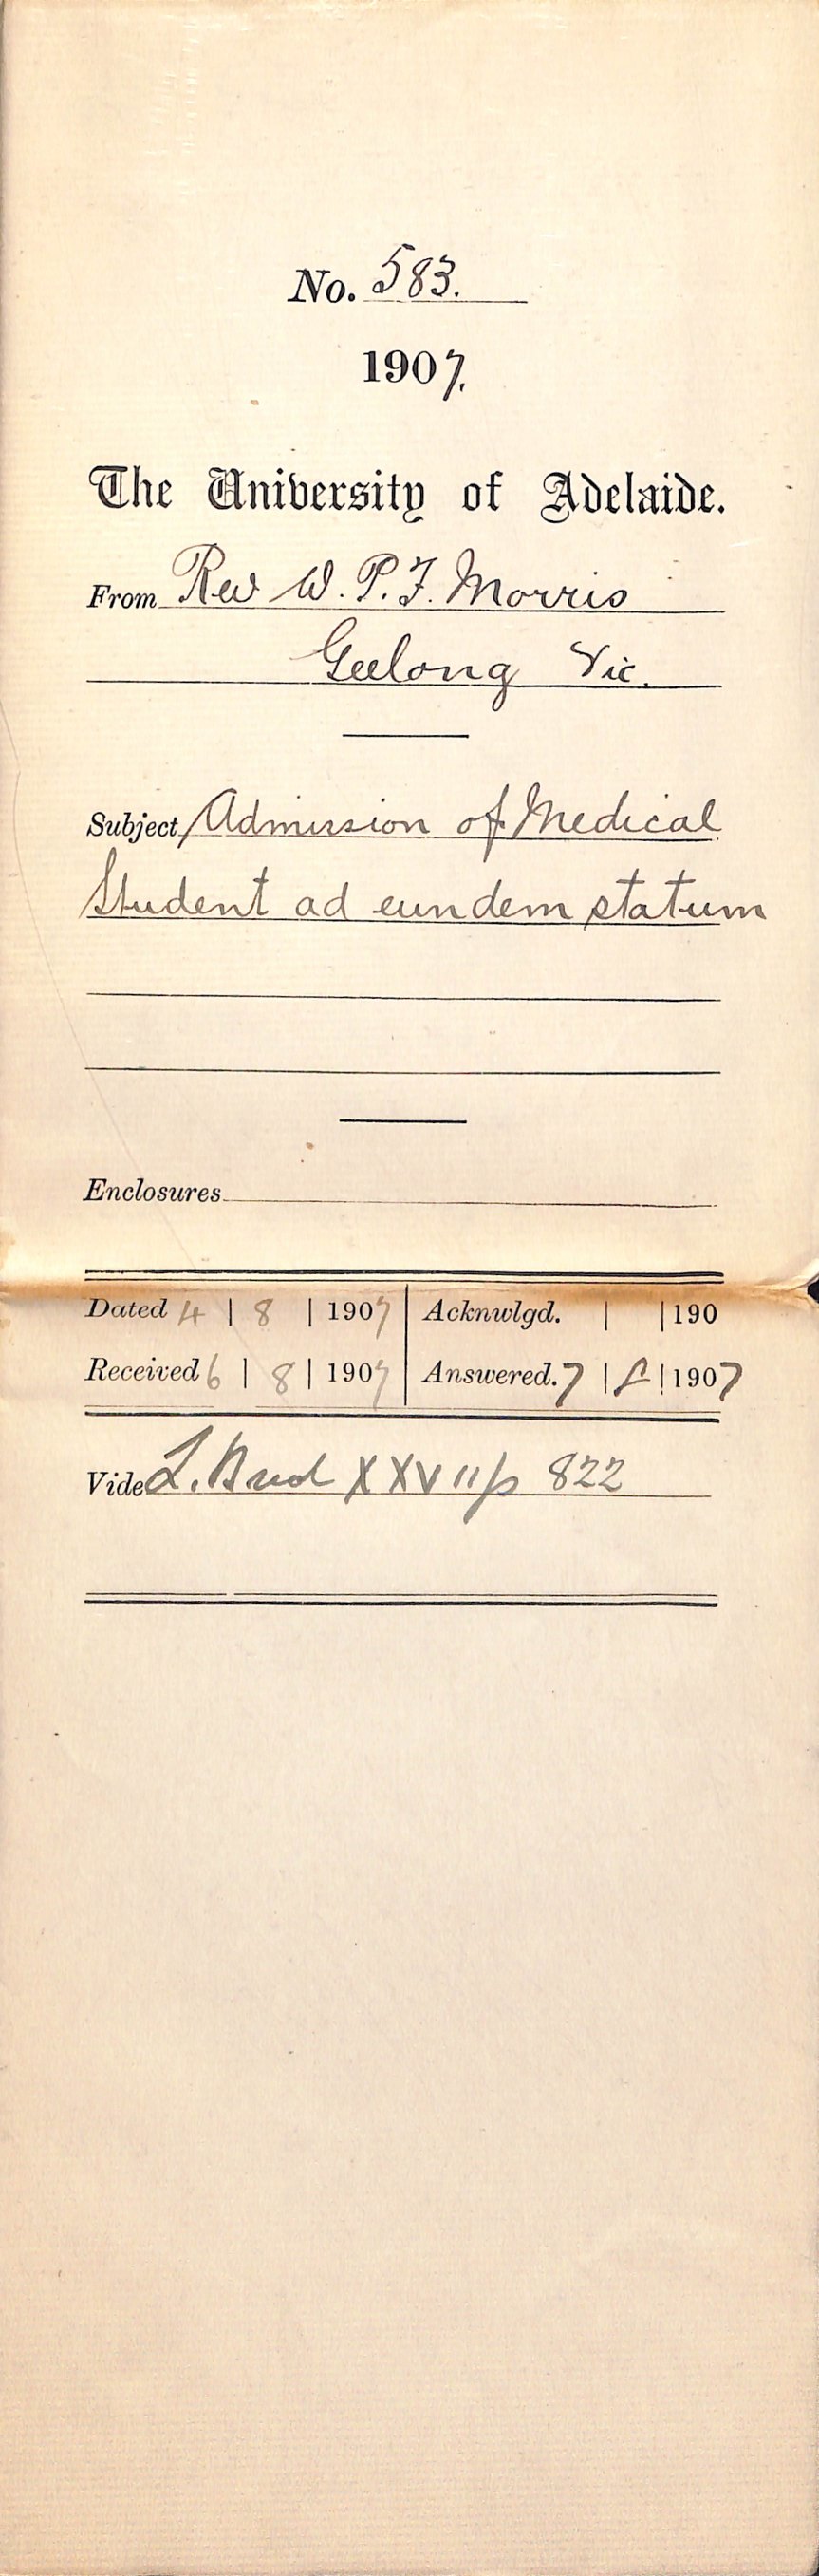 No. 583.
1907.
The University of Adelaide.
From Rev W. P. F. Morris
Geelong Vic.
Subject Admission of Medical
Student ad eundem statum
Enclosures
Dated 4 | 8 | 1907 Acknwlgd. | | 190
Received 6 | 8 | 1907 Answered. 7 | 8 | 1907
Vide L. XXVII p 822